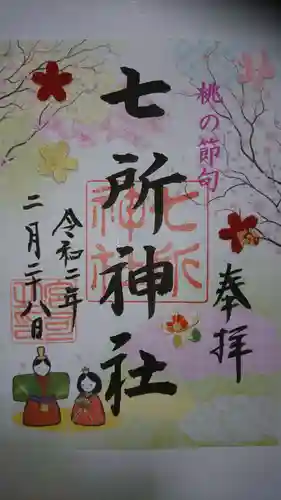 桃の節句
奉拝
七所神社
七所神社
令和二年
二月二十八日